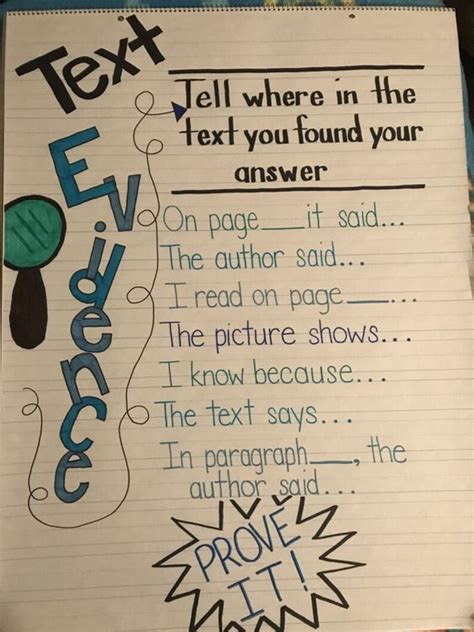 Text
Evidence
Tell where in the
text you found your
answer
On page___it said...
The author said...
I read on page___...
The picture shows...
I know because...
The text says...
In paragraph___, the
author said...
PROVE
IT!